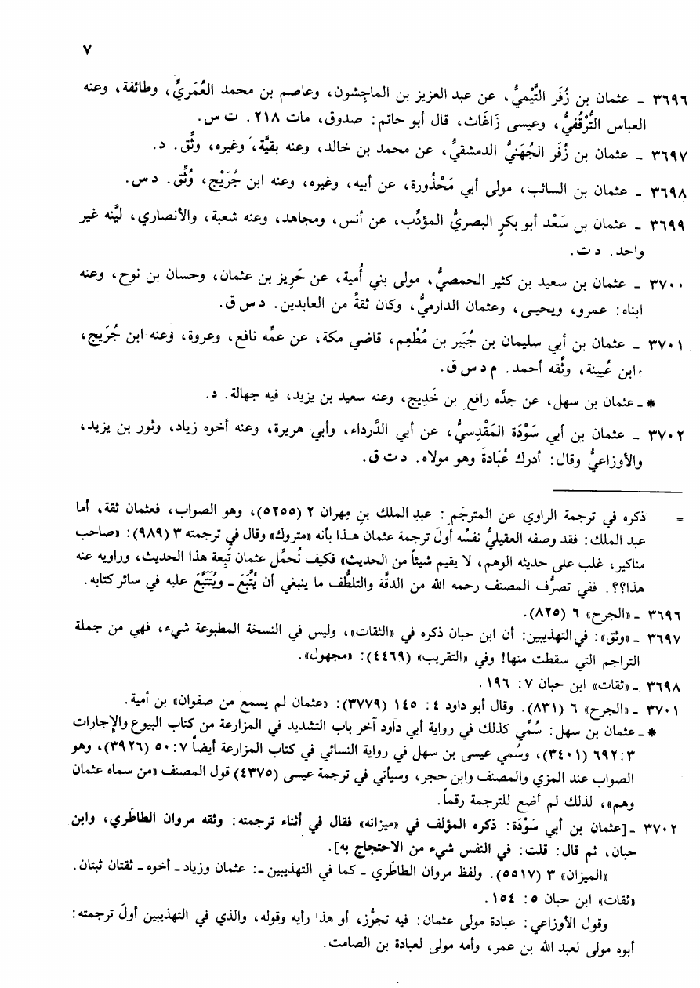 ٧
٣٦٩٦ ـ عثمان بن زُفَر التَّيْميُّ، عن عبد العزيز بن الماجِشون، وعاصم بن محمد العُمَريِّ، وطائفة، وعنه
العباس التُّرْقُفيُّ، وعيسى زَاغَات، قال أبو حاتم: صدوق، مات ٢١٨. ت س.
٣٦٩٧ ـ عثمان بن زُفَر الجُهَنيُّ الدمشقيُّ، عن محمد بن خالد، وعنه بقيَّة، وغيره، وثِّق. د.
٣٦٩٨ ـ عثمان بن السائب، مولى أبي مَحْذُورة، عن أبيه، وغيره، وعنه ابن جُرَيْج، وُثِّق. د س.
٣٦٩٩ ـ عثمان بن سَعْد أبو بكرٍ البصريُّ المؤدِّب، عن أنس، ومجاهد، وعنه شعبة، والأنصاري، ليَّنه غير
واحد. د ت.
٣٧٠٠ ـ عثمان بن سعيد بن كثير الحمصيُّ، مولى بني أُمية، عن حَرِيز بن عثمان، وحسان بن نوح، وعنه
ابناه: عمرو، ويحيى، وعثمان الدارميُّ، وكان ثقةً من العابدين. د س ق.
٣٧٠١ ـ عثمان بن أبي سليمان بن جُبَير بن مُطْعِم، قاضي مكة، عن عمِّه نافع، وعروة، وعنه ابن جُرَيج،
وابن عُيينة، وثَّقه أحمد. م د س ق.
* ـ عثمان بن سهل، عن جدِّه رافع بن خَدِيج، وعنه سعيد بن يزيد، فيه جهالة. د.
٣٧٠٢ ـ عثمان بن أبي سَوْدَة المَقْدِسيُّ، عن أبي الدَّرداء، وأبي هريرة، وعنه أخوه زياد، وثور بن يزيد،
والأوزاعيُّ وقال: أدرك عُبَادةَ وهو مولاه. د ت ق.
= ذكره في ترجمة الراوي عن المترجَم: عبد الملك بن مِهران ٢ (٥٢٥٥)، وهو الصواب، فعثمان ثقة، أما
عبد الملك: فقد وصفه العقيليُّ نفسُه أولَ ترجمة عثمان هذا بأنه «متروك» وقال في ترجمته ٣ (٩٨٩): «صاحب
مناكير، غلب على حديثه الوهم، لا يقيم شيئاً من الحديث» فكيف نُحمِّل عثمان تَبِعة هذا الحديث، وراويه عنه
هذا؟؟. ففي تصرُّف المصنف رحمه الله من الدقَّة والتلطُّف ما ينبغي أن يُتْبَع ـ ويُتَتَبَّع عليه في سائر كتابه.
٣٦٩٦ ـ «الجرح» ٦ (٨٢٥).
٣٦٩٧ ـ «وثق»: في التهذيبين: أن ابن حبان ذكره في «الثقات»، وليس في النسخة المطبوعة شيء، فهي من جملة
التراجم التي سقطت منها! وفي «التقريب» (٤٤٦٩): «مجهول».
٣٦٩٨ ـ «ثقات» ابن حبان ٧: ١٩٦.
٣٧٠١ ـ «الجرح» ٦ (٨٣١). وقال أبو داود ٤: ١٤٥ (٣٧٧٩): «عثمان لم يسمع من صفوان» بن أمية.
* ـ عثمان بن سهل: سُمِّي كذلك في رواية أبي داود آخر باب التشديد في المزارعة من كتاب البيوع والإجارات
٣: ٦٩٢ (٣٤٠١)، وسُمي عيسى بن سهل في رواية النسائي في كتاب المزارعة أيضاً ٧: ٥٠ (٣٩٢٦)، وهو
الصواب عند المزي والمصنف وابن حجر، وسيأتي في ترجمة عيسى (٤٣٧٥) قول المصنف «من سماه عثمان
وهم»، لذلك لم أضع للترجمة رقماً.
٣٧٠٢ ـ [عثمان بن أبي سَوْدَة: ذكره المؤلف في «ميزانه» فقال في أثناء ترجمته: وثقه مروان الطاطَري، وابن
حبان، ثم قال: قلت: في النفس شيء من الاحتجاج به].
«الميزان» ٣ (٥٥١٧). ولفظ مروان الطاطَري ـ كما في التهذيبين ـ: عثمان وزياد ـ أخوه ـ ثقتان ثبتان.
«ثقات» ابن حبان ٥: ١٥٤.
وقول الأوزاعي: عبادة مولى عثمان: فيه تجوُّز، أو هذا رأيه وقوله، والذي في التهذيبين أولَ ترجمته:
أبوه مولى لعبد الله بن عمر، وأمه مولى لعبادة بن الصامت.